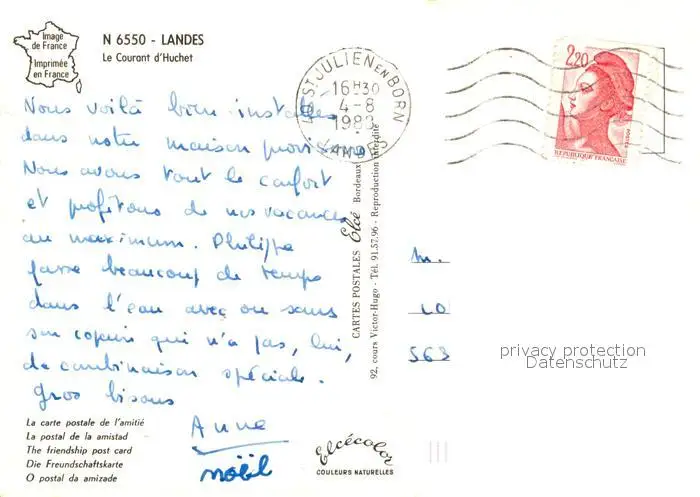 Image
de France
Imprimée
en France
N 6550 - LANDES
Le Courant d'Huchet
ST JULIEN EN BORN
16H30
4-8
LANDES
2,20
REPUBLIQUE FRANÇAISE
Nous voilà bien installés
dans notre maison provisoire.
Nous avons tout le confort
et profitons de nos vacances
au maximum. Philippe
passe beaucoup de temps
dans l'eau avec ou sans
son copain qui n'a pas, lui,
de combinaison spéciale.
Gros bisous
Anne
noël
CARTES POSTALES Elcé Bordeaux
92, cours Victor-Hugo - Tél. 91.57.96 - Reproduction interdite
M.
LO
563
privacy protection
Datenschutz
La carte postale de l'amitié
La postal de la amistad
The friendship post card
Die Freundschaftskarte
O postal da amizade
Elcécolor
COULEURS NATURELLES